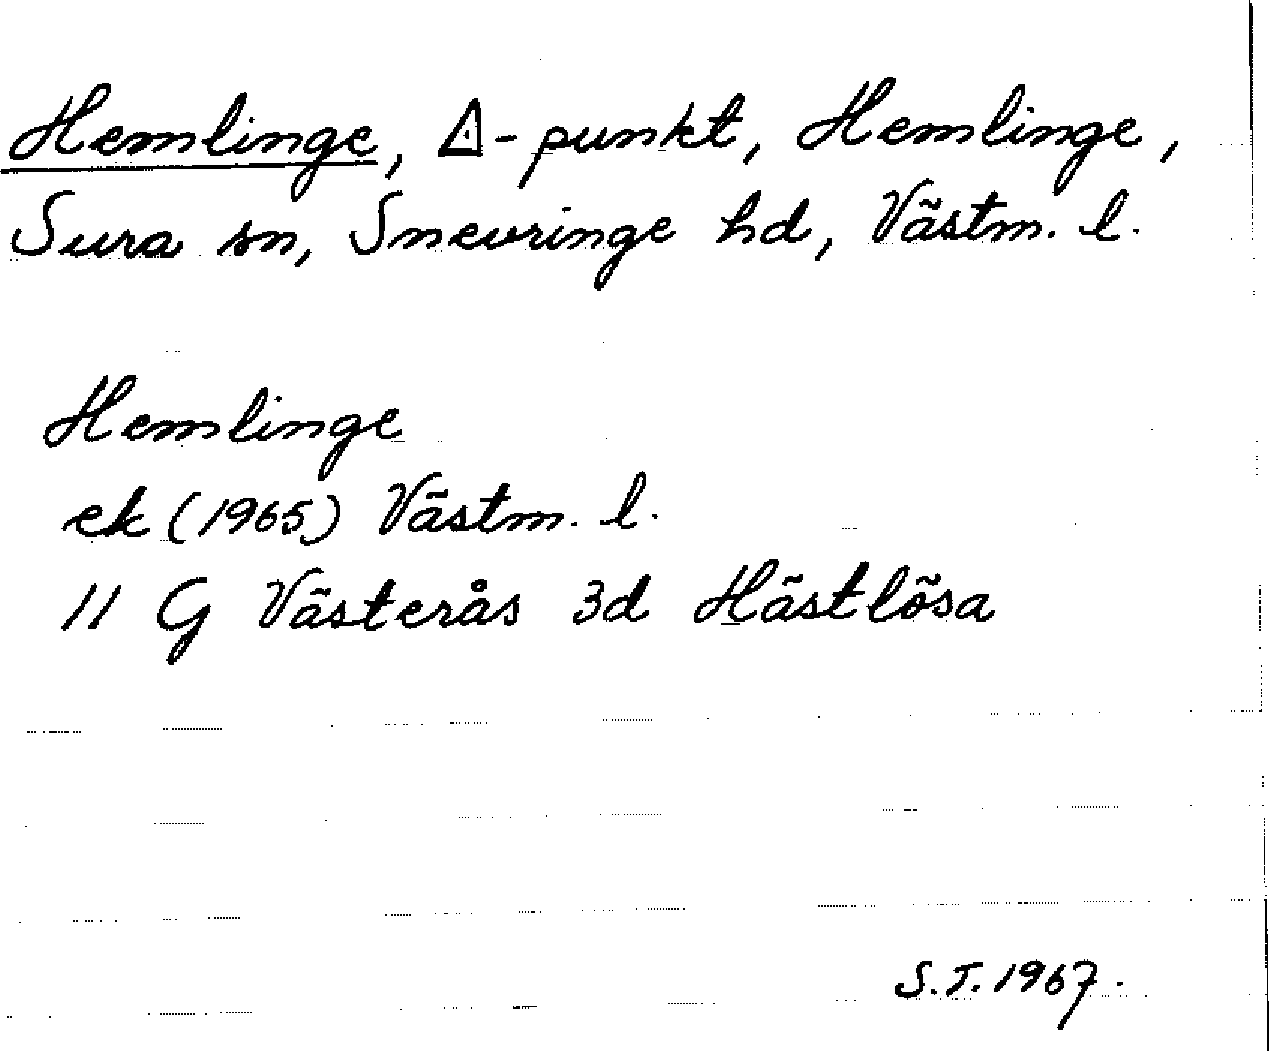 Hemlinge, △-punkt, Hemlinge,
Sura sn, Snevringe hd, Västm. l.
Hemlinge
ek (1965) Västm. l.
11 G Västerås 3d Hästlösa
S.T. 1967.